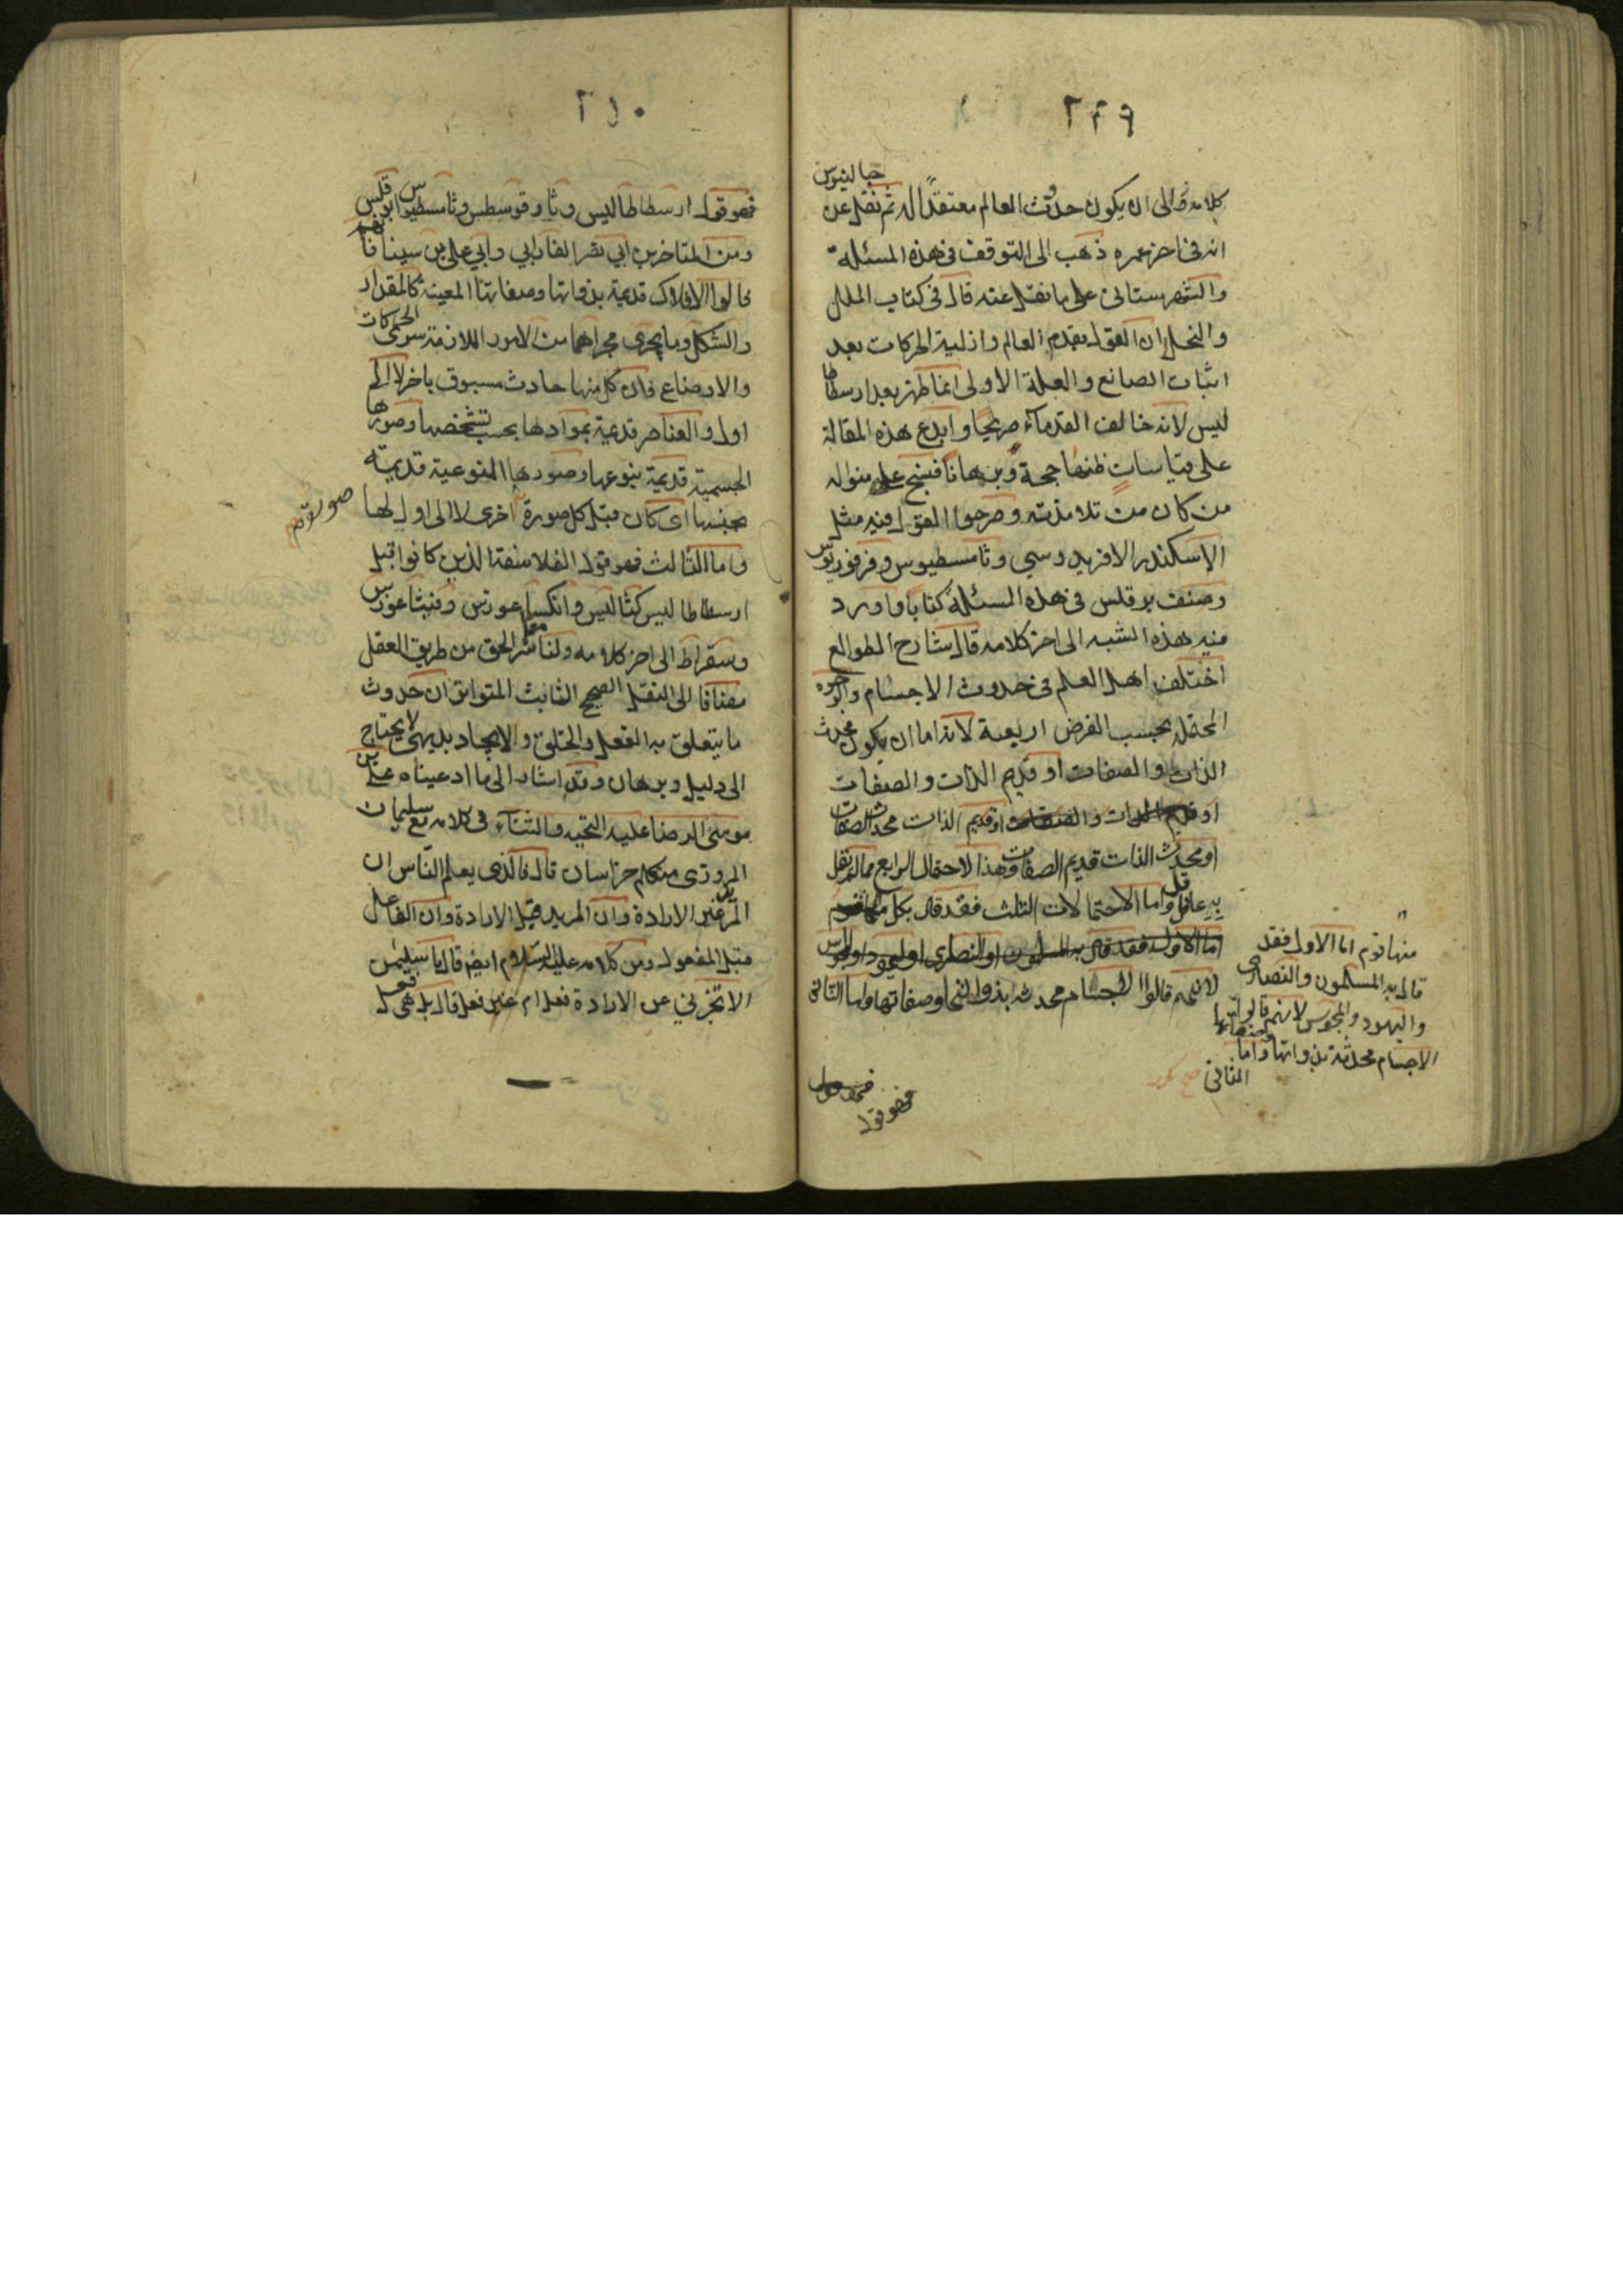 ٢٤٩
كلامه تعالى ان يكون حدوث العالم معتقدا له ثم نقل عن جالينوس
انه في اخر عمره ذهب الى التوقف في هذه المسئلة
والشهرستاني على ما نقل عنه قال في كتاب الملل
والنحل ان القول بقدم العالم وازلية الحركات بعد
اثبات الصانع والعلة الاولى انما ظهر بعد ارسطاطا
ليس لانه خالف القدماء صريحا وابدع هذه المقالة
على قياسات ظنها حجة وبرهانا فنسج على منواله
من كان من تلامذته وصرحوا القول فيه مثل
الاسكندر الافريدوسي وثامسطيوس وفرفوريوس
وصنف برقلس في هذه المسئلة كتابا واورد
فيه هذه الشبه الى اخر كلامه قال شارح الطوالع
اختلف اهل العلم في حدوث الاجسام والوجوه
المحتملة بحسب الفرض اربعة لانه اما ان يكون محدث
الذات والصفات او قديم الذات والصفات
او قديم الذات والصفات او قديم الذات محدث الصفات
او محدث الذات قديم الصفات وهذا الاحتمال الرابع مما لم يقل
به عاقل واما الاحتمالات الثلث فقد قال بكل منها قوم
اما الاول فقد قال به المسلمون والنصارى واليهود والمجوس
لانهم قالوا الاجسام محدثه بذواتها وصفاتها واما الثاني
فهو قول
فهو قول
منها قوم اما الاول فقد
قال به المسلمون والنصارى
واليهود والمجوس لانهم قالوا
الاجسام محدثة بذواتها وصفاتها واما
الثاني صح
٢٥٠
فهو قول ارسطاطاليس وثاوفرسطس وثامسطيوس وابرقلس
ومن المتاخرين ابي نصر الفارابي وابي علي بن سينا فانهم
قالوا الافلاك قديمة بذواتها وصفاتها المعينة كالمقدار
والشكل وما يجري مجراهما من الامور اللازمة سوى الحركات
والاوضاع فان كل منها حادث مسبوق باخر لا الى
اول والعناصر قديمة بموادها بحسب تشخصها وصورها
الجسمية قديمة بنوعها وصورها النوعية قديمة
بجنسها اى كان قبل كل صورة اخرى لا الى اول لها
واما الثالث فهو قول الفلاسفة الذين كانوا قبل
ارسطاطاليس كثاليس وانكساغورس وفيثاغورس
وسقراط الى اخر كلامه ولنا معاشر الحق من طريق العقل
مضافا الى النقل الصحيح الثابت المتواتر ان حدوث
ما يتعلق به الفعل والخلق والايجاد بديهي لا يحتاج
الى دليل وبرهان وقد اشار الى ما ادعيناه علي بن
موسى الرضا عليه التحية والثناء في كلامه مع سليمان
المروزى متكلم خراسان قال فالذى يعلم الناس ان
المريد غير الارادة وان المريد قبل الارادة وان الفاعل
قبل المفعول ومن كلامه عليه السلام ايضا قال يا سليمن
الا تخبرني عن الارادة فعل ام غير فعل قال بل هي فعل